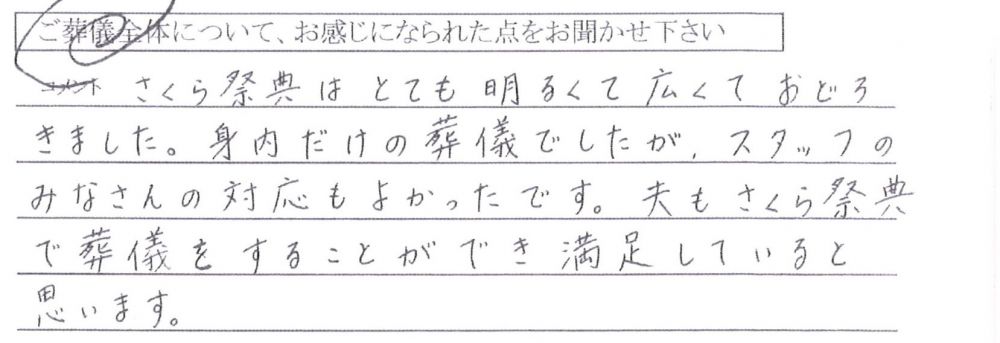 ご葬儀全体について、お感じになられた点をお聞かせ下さい
コメント さくら祭典はとても明るくて広くておどろ
きました。身内だけの葬儀でしたが、スタッフの
みなさんの対応もよかったです。夫もさくら祭典
で葬儀をすることができ満足していると
思います。